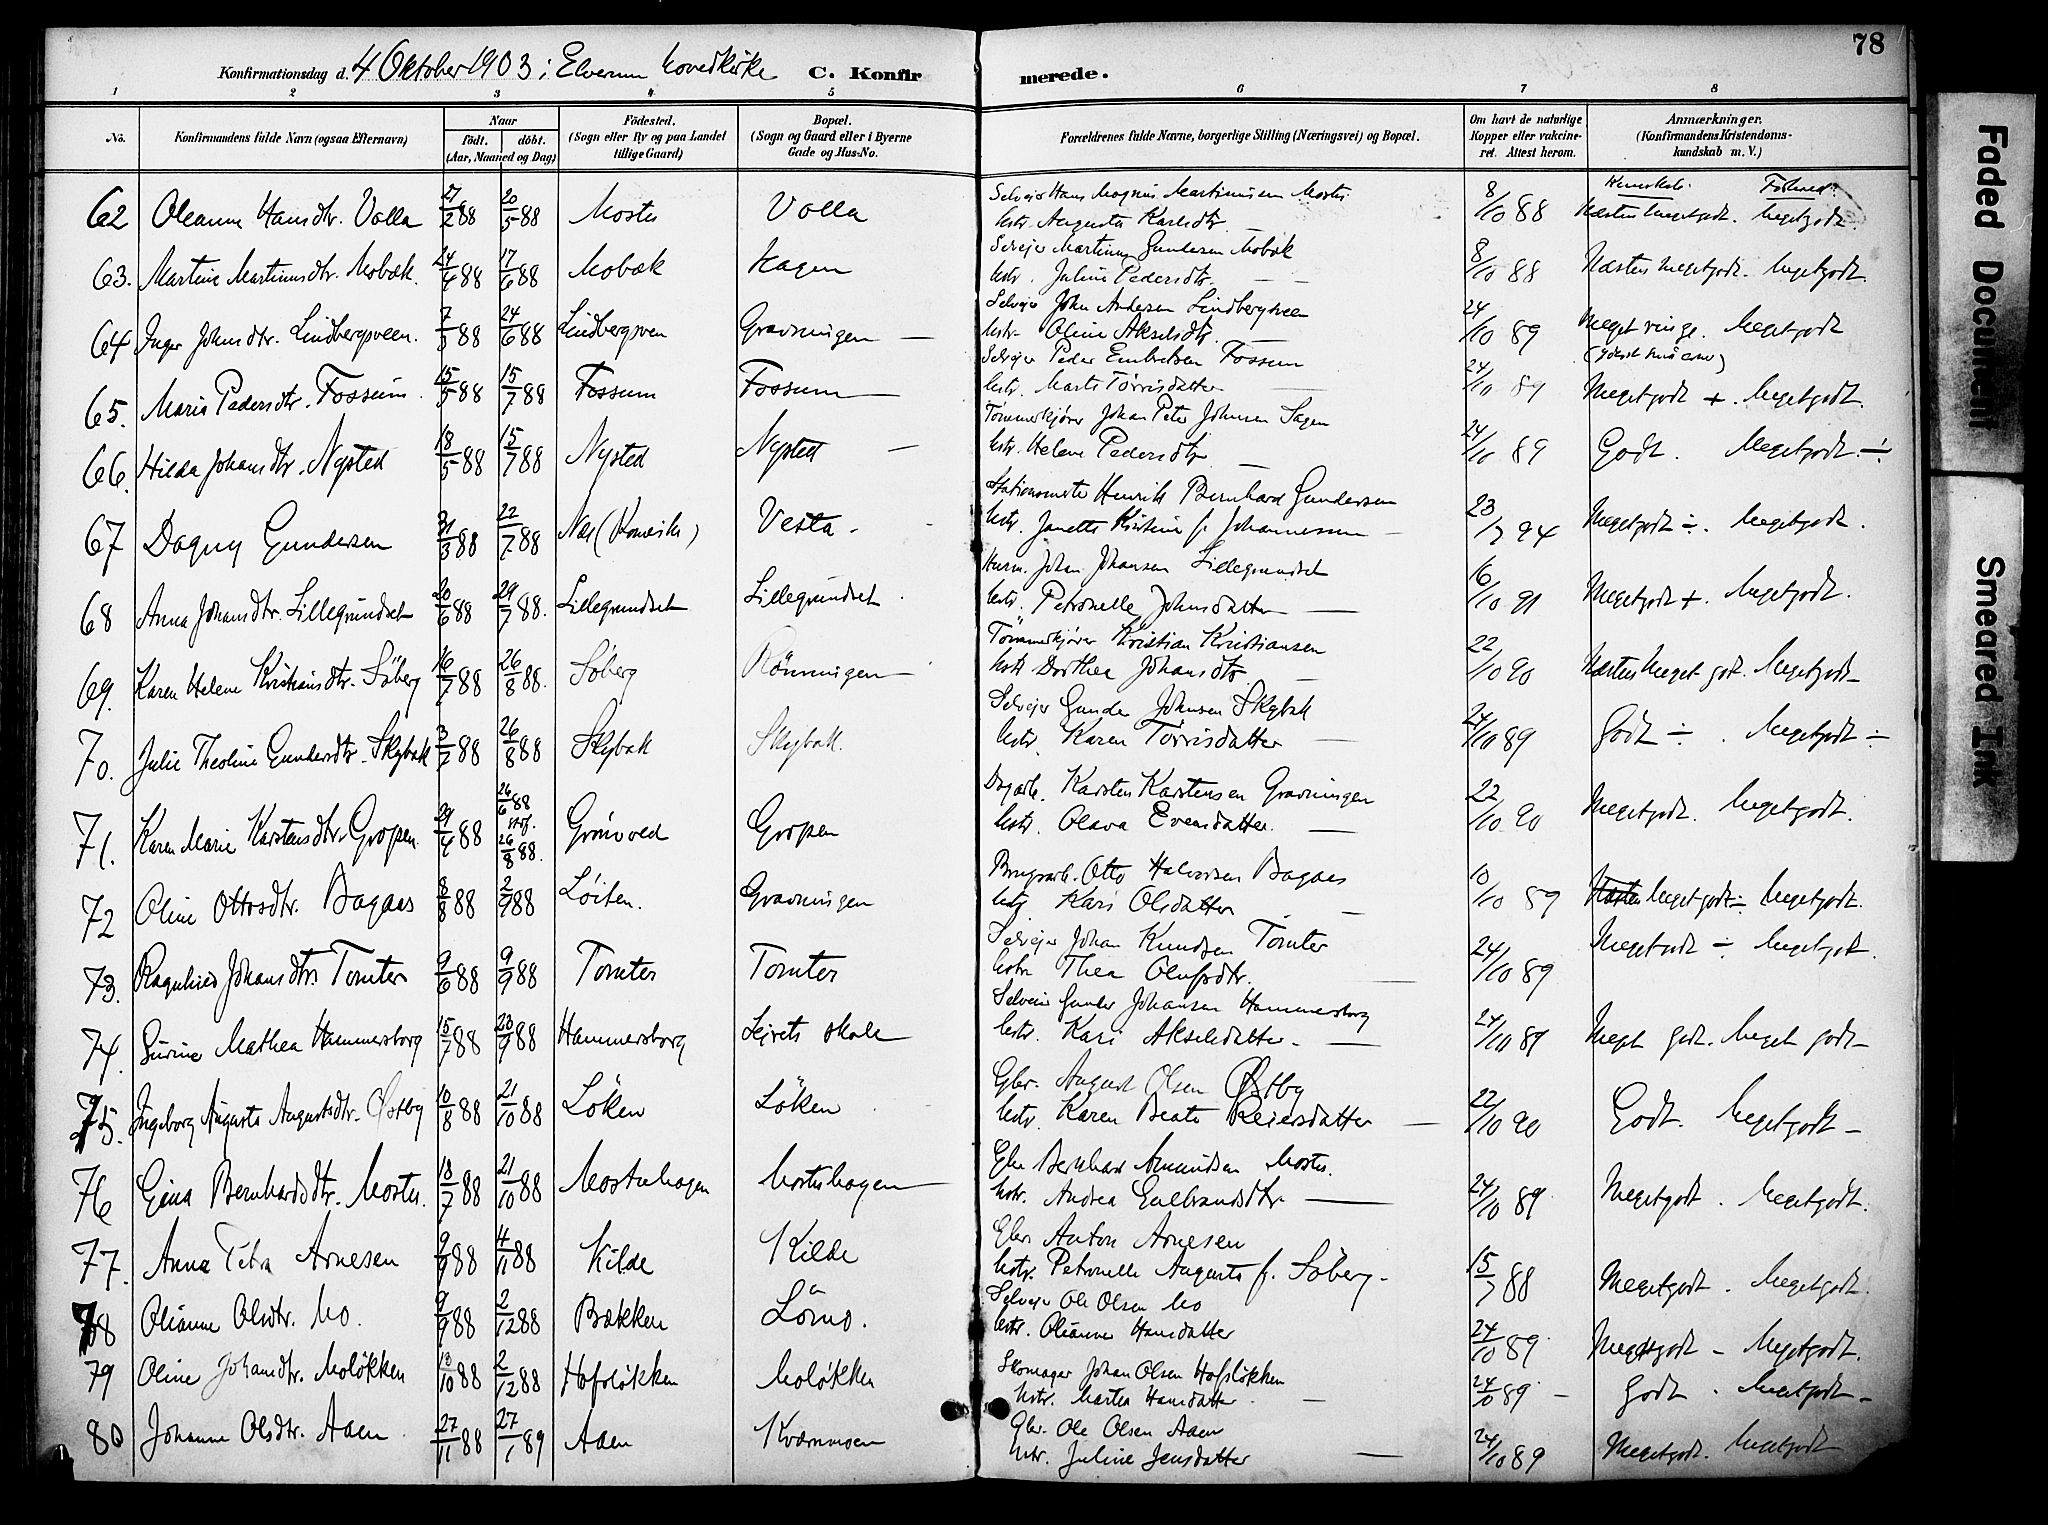 78
Konfirmationsdag d. 4 Oktober 1903 i Elverum hovedkirke C. Konfirmerede.
1 2 3 4 5 6 7 8
No. Konfirmandens fulde Navn (ogsaa Efternavn) Naar født. døbt. (Aar, Naaned og Dag) Fødested. (Sogn eller By og paa Landet tillige Gaard) Bopæl. (Sogn og Gaard eller i Byerne Gade og Hus-No. Forældrenes fulde Navne, borgerlige Stilling (Næringsvei) og Bopæl. Om havt de naturlige Kopper eller vakcineret. Attest herom. Anmærkninger. (Konfirmandens Kristendomskundskab m. V.)
62 Oleanne Hansdtr. Volla 27/2 88 20/5 88 Mostu Volla Selveier Hans Magnus Martinusen Mostu
hstr. Augusta Karlsdtr. 8/10 88 Næsten Megetgodt. Megetgodt.
63. Martine Martinusdtr. Mobæk. 24/4 88 17/6 88 Mobæk Hagen Selvejer Martinus Gundersen Mobæk
hstr. Julie Pedersdtr. 8/10 88 Næsten Megetgodt. Megetgodt.
64 Inger Johnsdtr. Lindbergsveen. 7/5 88 24/6 88 Lindbergsveen Gravningen Selvejer John Andersen Lindbergsveen
hstr. Oline Akselsdtr. 24/10 89 Meget ringe. Megetgodt
65. Marie Pedersdtr. Fossum 15/5 88 15/7 88 Fossum Fossum Selvejer Peder Embretsen Fossum
hstr. Marte Tørrisdatter 24/10 89 Megetgodt +. Megetgodt.
66. Hilda Johansdtr. Nysted 18/5 88 15/7 88 Nysted Nysted Tømmerkjører Johan Peter Johnsen Sagen
hstr. Helene Pedersdtr. 24/10 89 Godt. Megetgodt ÷.
67 Dagny Gundersen 31/3 88 22/7 88 Næs (Romerike) Vesta. Stationsmester Henrik Bernhard Gundersen
hstr. Janette Kristine f. Johannessen 23/7 94 Megetgodt ÷. Megetgodt.
68 Anna Johansdtr. Lillegrundset 20/6 88 29/7 88. Lillegrundset Lillegrundset Husm. Johan Johansen Lillegrundset
hstr. Petronelle Johnsdatter 16/10 91 Megetgodt +. Megetgodt.
69. Karen Helene Kristiansdtr. Søberg 16/7 88 26/8 88. Søberg Rønningen Tømmerkjører Kristian Kristiansen
hstr. Dorthea Johansdtr. 22/10 90 Næsten Meget godt. Megetgodt
70. Julie Theoline Gundersdtr. Skybak 3/7 88 26/8 88 Skybak Skybak. Selvejer Gunder Johnsen Skybak
hstr. Karen Tørrisdatter 24/10 89 Godt ÷. Megetgodt ÷
71. Karen Marie Karstensdtr. Gropen. 29/4 88 26/6 88 26/8 88. Grønvoed Gropen Dagarb. Karsten Karstensen Gravningen
hstr. Olava Evensdatter. 22/10 90 Megetgodt. Megetgodt.
72 Oline Ottosdtr. Bagaas 8/8 88 2/9 88 Løiten. Gravningen Brugsarb. Otto Halvorsen Bagaas
hstr. Kari Olsdatter 10/10 89 Megetgodt ÷. Megetgodt.
73. Ragnhild Johansdtr. Tomter 9/6 88 9/9 88 Tomter Tomter Selvejer Johan Knudsen Tomter
hstr. Thea Olufsdtr. 24/10 89 Megetgodt ÷. Megetgodt.
74. Gurine Mathea Hammersborg 15/7 88 23/9 88 Hammersborg Lejrets skole Selveier Gunder Johansen Hammersborg
hstr. Kari Akselsdatter. 24/10 89 Meget godt. Meget godt
75. Ingeborg Augusta Augustsdtr. Østby 10/8 88 21/10 88 Løken Løken Gbr. August Olsen Østby
hstr. Karen Beate Reiersdatter 22/10 90 Godt. Megetgodt
76 Gina Bernhardsdtr. Mostu. 18/7 88 21/10 88 Mostuhagen Mostuhagen Gbr Bernhard Amundsen Mostu.
hstr. Andrea Engebrandsdtr. 24/10 89 Megetgodt. Megetgodt.
77. Anna Petra Arnesen 9/9 88 4/11 88 Kilde Kilde Gbr. Anton Arnesen
hstr. Petronelle Augusta f. Søberg 15/7 88 Megetgodt. Megetgodt.
78 Olianne Olsdtr. Mo. 9/9 88 2/12 88 Bækken Lømo. Selvejer Ole Olsen Mo
hstr. Olianne Hansdatter 24/10 89 Megetgodt - Megetgodt.
79 Oline Johansdtr. Moløkken 13/10 88 2/12 88 Hofsløkken Moløkken Skomager Johan Olsen Hofsløkken
hstr. Martea Hansdatter 24/10 89 Godt. Megetgodt
80 Johanne Olsdtr. Aaen 27/11 88 27/1 89 Aaen Kværnmoen Gbr. Ole Olsen Aaen
hstr. Juline Jensdatter 24/10 89 Megetgodt. Megetgodt
Faded Document
Smeared Ink